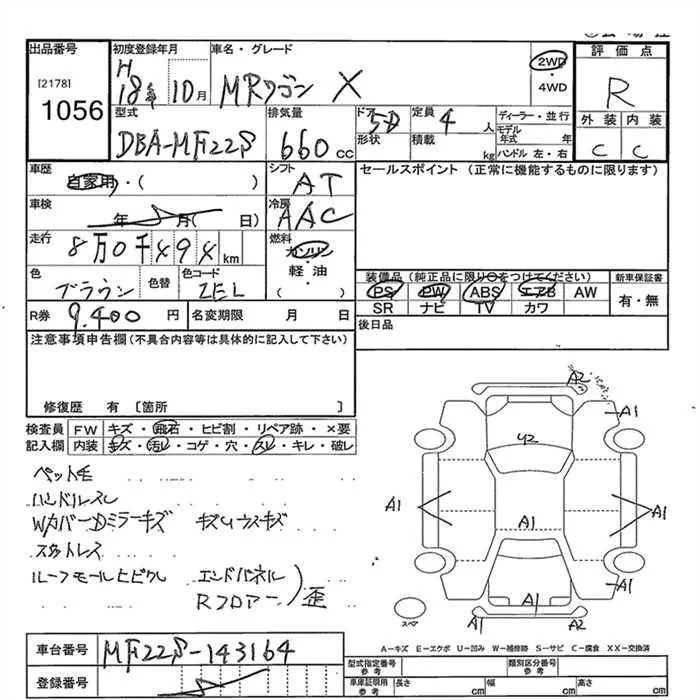 出品番号 初度登録年月 車名・グレード 評価点
[2178] H 18年 10月 MRワゴン X 2WD ・ 4WD R
1056
型式 排気量 ドア 定員 ディーラー・並行 外装 内装
DBA-MF22S 660cc 5D 4人 モデル年式 年 C C
形状 積載 kg ハンドル 左・右
車歴 自家用・( ) シフト AT セールスポイント (正常に機能するものに限ります)
車検 年 月( 日) 冷房 AAC
走行 8万0千494km 燃料 ガソリン
軽油
( )
色 ブラウン 色替 色コード ZEL 装備品 (純正品に限り○をつけてください) 新車保証書
PS PW ABS エアB AW 有・無
SR ナビ TV カワ
R券 9,400円 名変期限 月 日 後日品
注意事項申告欄(不具合内容等は具体的に記入して下さい)
修復歴 有 [箇所 ]
検査員 FW キズ・飛石・ヒビ割・リペア跡・×要
記入欄 内装 キズ・汚レ・コゲ・穴・スレ・キレ・破レ
ペット毛
ハンドルスレ
Wカバー Dミラーキズ キズUウスキズ
ステアトレス
ルーフモールヒビワレ エンドパネル
Rフロアー 歪
A2
A1
U2
A1
A1
A1
A1
A1
A1
A2
スペア
A-キズ E-エクボ U-凹み W-補修跡 S-サビ C-腐食 XX-交換済
車台番号 MF22S-143164
登録番号
型式指定番号 参考 類別区分番号 参考
車庫証明用 参考 長さ cm 幅 cm 高さ cm